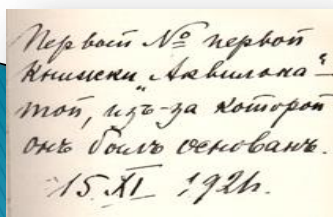 Первый № первой
книжки „Аквилона" –
той, изъ-за которой
онъ былъ основанъ.
15 XI 1921.